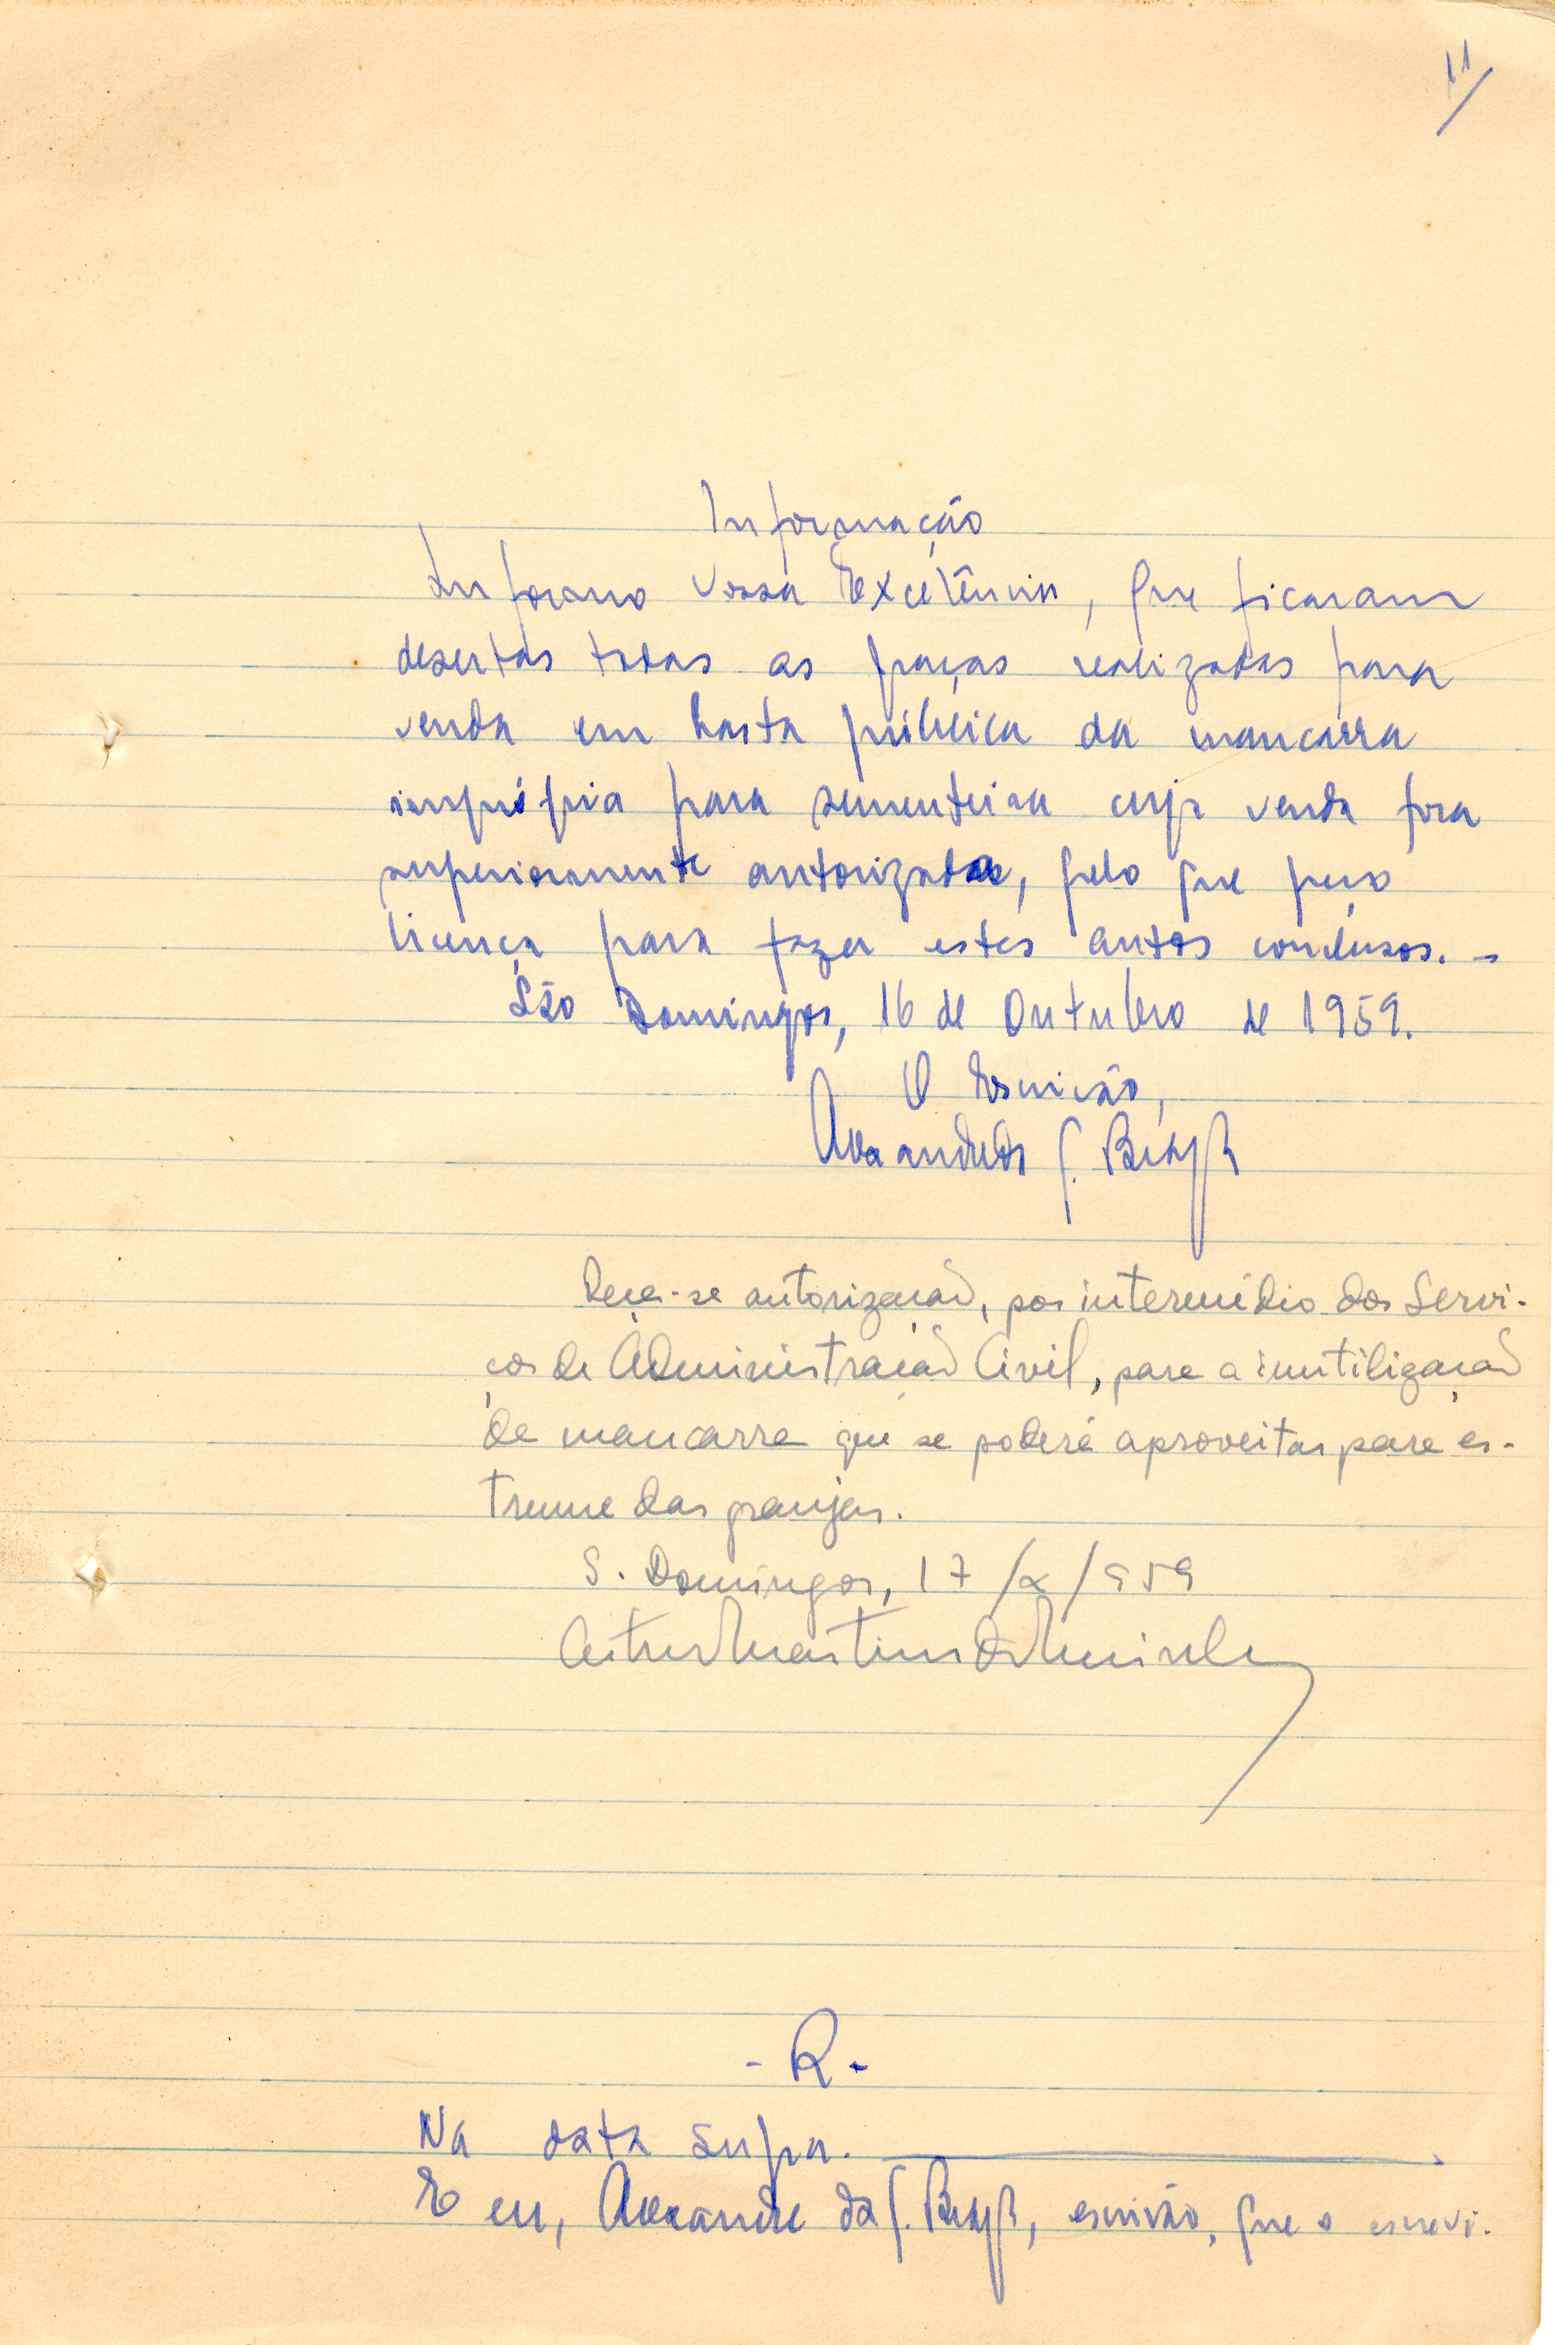 11
Informação
Informo Vossa Excelência, que ficaram
desertas todas as praças realizadas para
venda em hasta pública da mancarra
imprópria para sementeira cuja venda fora
superiormente autorizada, pelo que peço
licença para fazer estes autos conclusos. -
São Domingos, 16 de Outubro de 1959.
O Escrivão,
Alexandre da
Peça-se autorização, por intermédio dos Servi-
ços de Administração Civil, para a inutilização
de mancarra que se poderá aproveitar para es-
trume das granjas.
S. Domingos, 17/X/959
- R -
Na data supra.
E eu, Alexandre da, escrivão, que o escrevi.